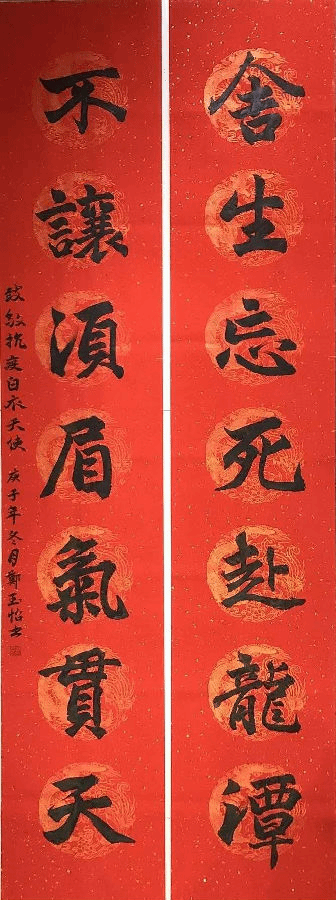 舍生忘死赴龍潭
不讓須眉氣貫天
致敬抗疫白衣天使
庚子年冬月鄭玉怡书